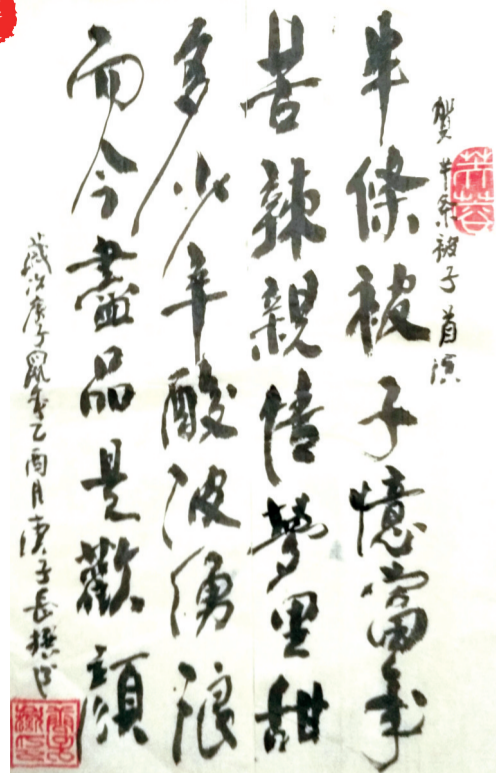 賀半条被子首演
半條被子憶當年
苦辣親情夢里甜
多少年酸波湧浪
而今盡品是歡顔
歲次庚子鼠年乙酉月庚子長撰書